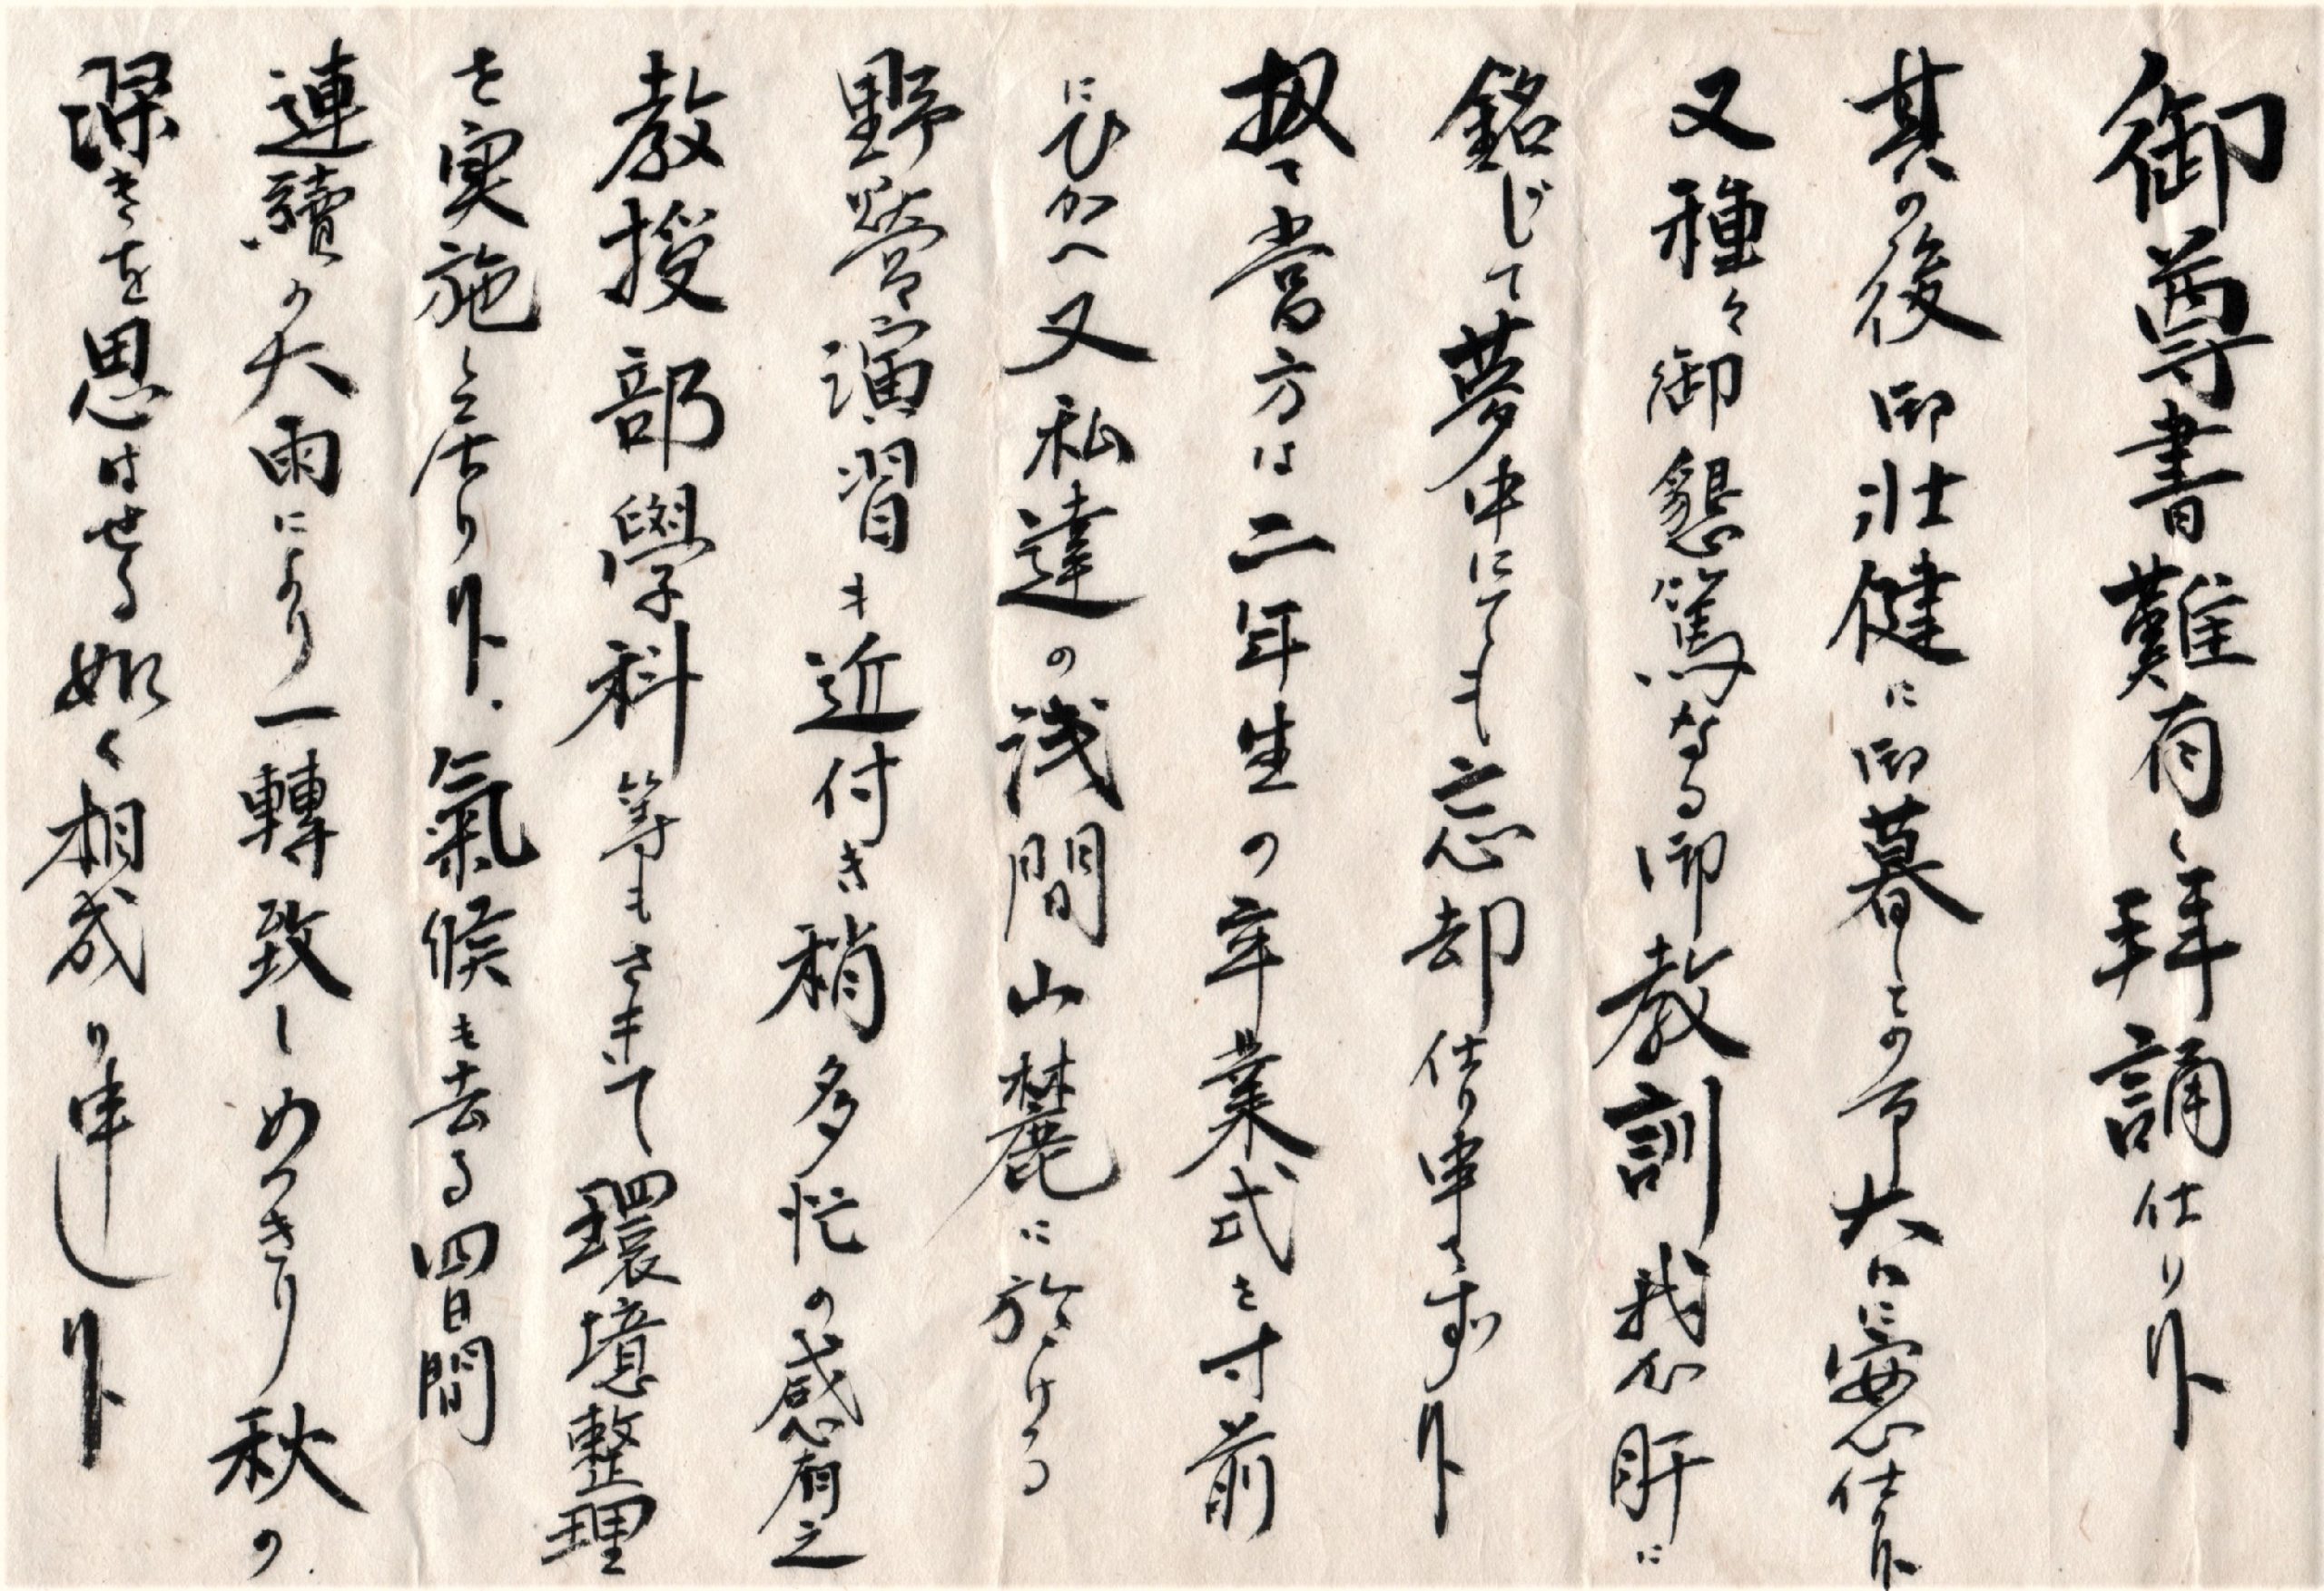 御尊書難有く拝誦仕り候
其の後御壮健に御暮しとの事大いに安心仕り候
又種々御懇篤なる御教訓我心肝に
銘じて夢中にても忘却仕り申さず候
扨て当方は二年生の卒業式を寸前
にひかへ又私達の浅間山麓に於ける
野営演習も近付き稍多忙の感有之
教授部學科等もさきて環境整理
を実施し居り候、氣候も去る四日間
連續の大雨により一轉致しめつきり秋の
深きを思はせる如く相成り申し候